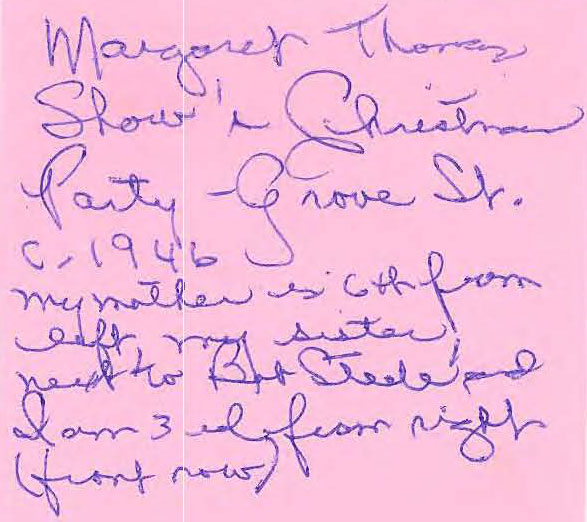 Margaret Thomas
Show's Christmas
Party - Grove St.
c. 1946
my mother is 6th from
left my sister
next to Steele and
I am 3rd from right
(front row)